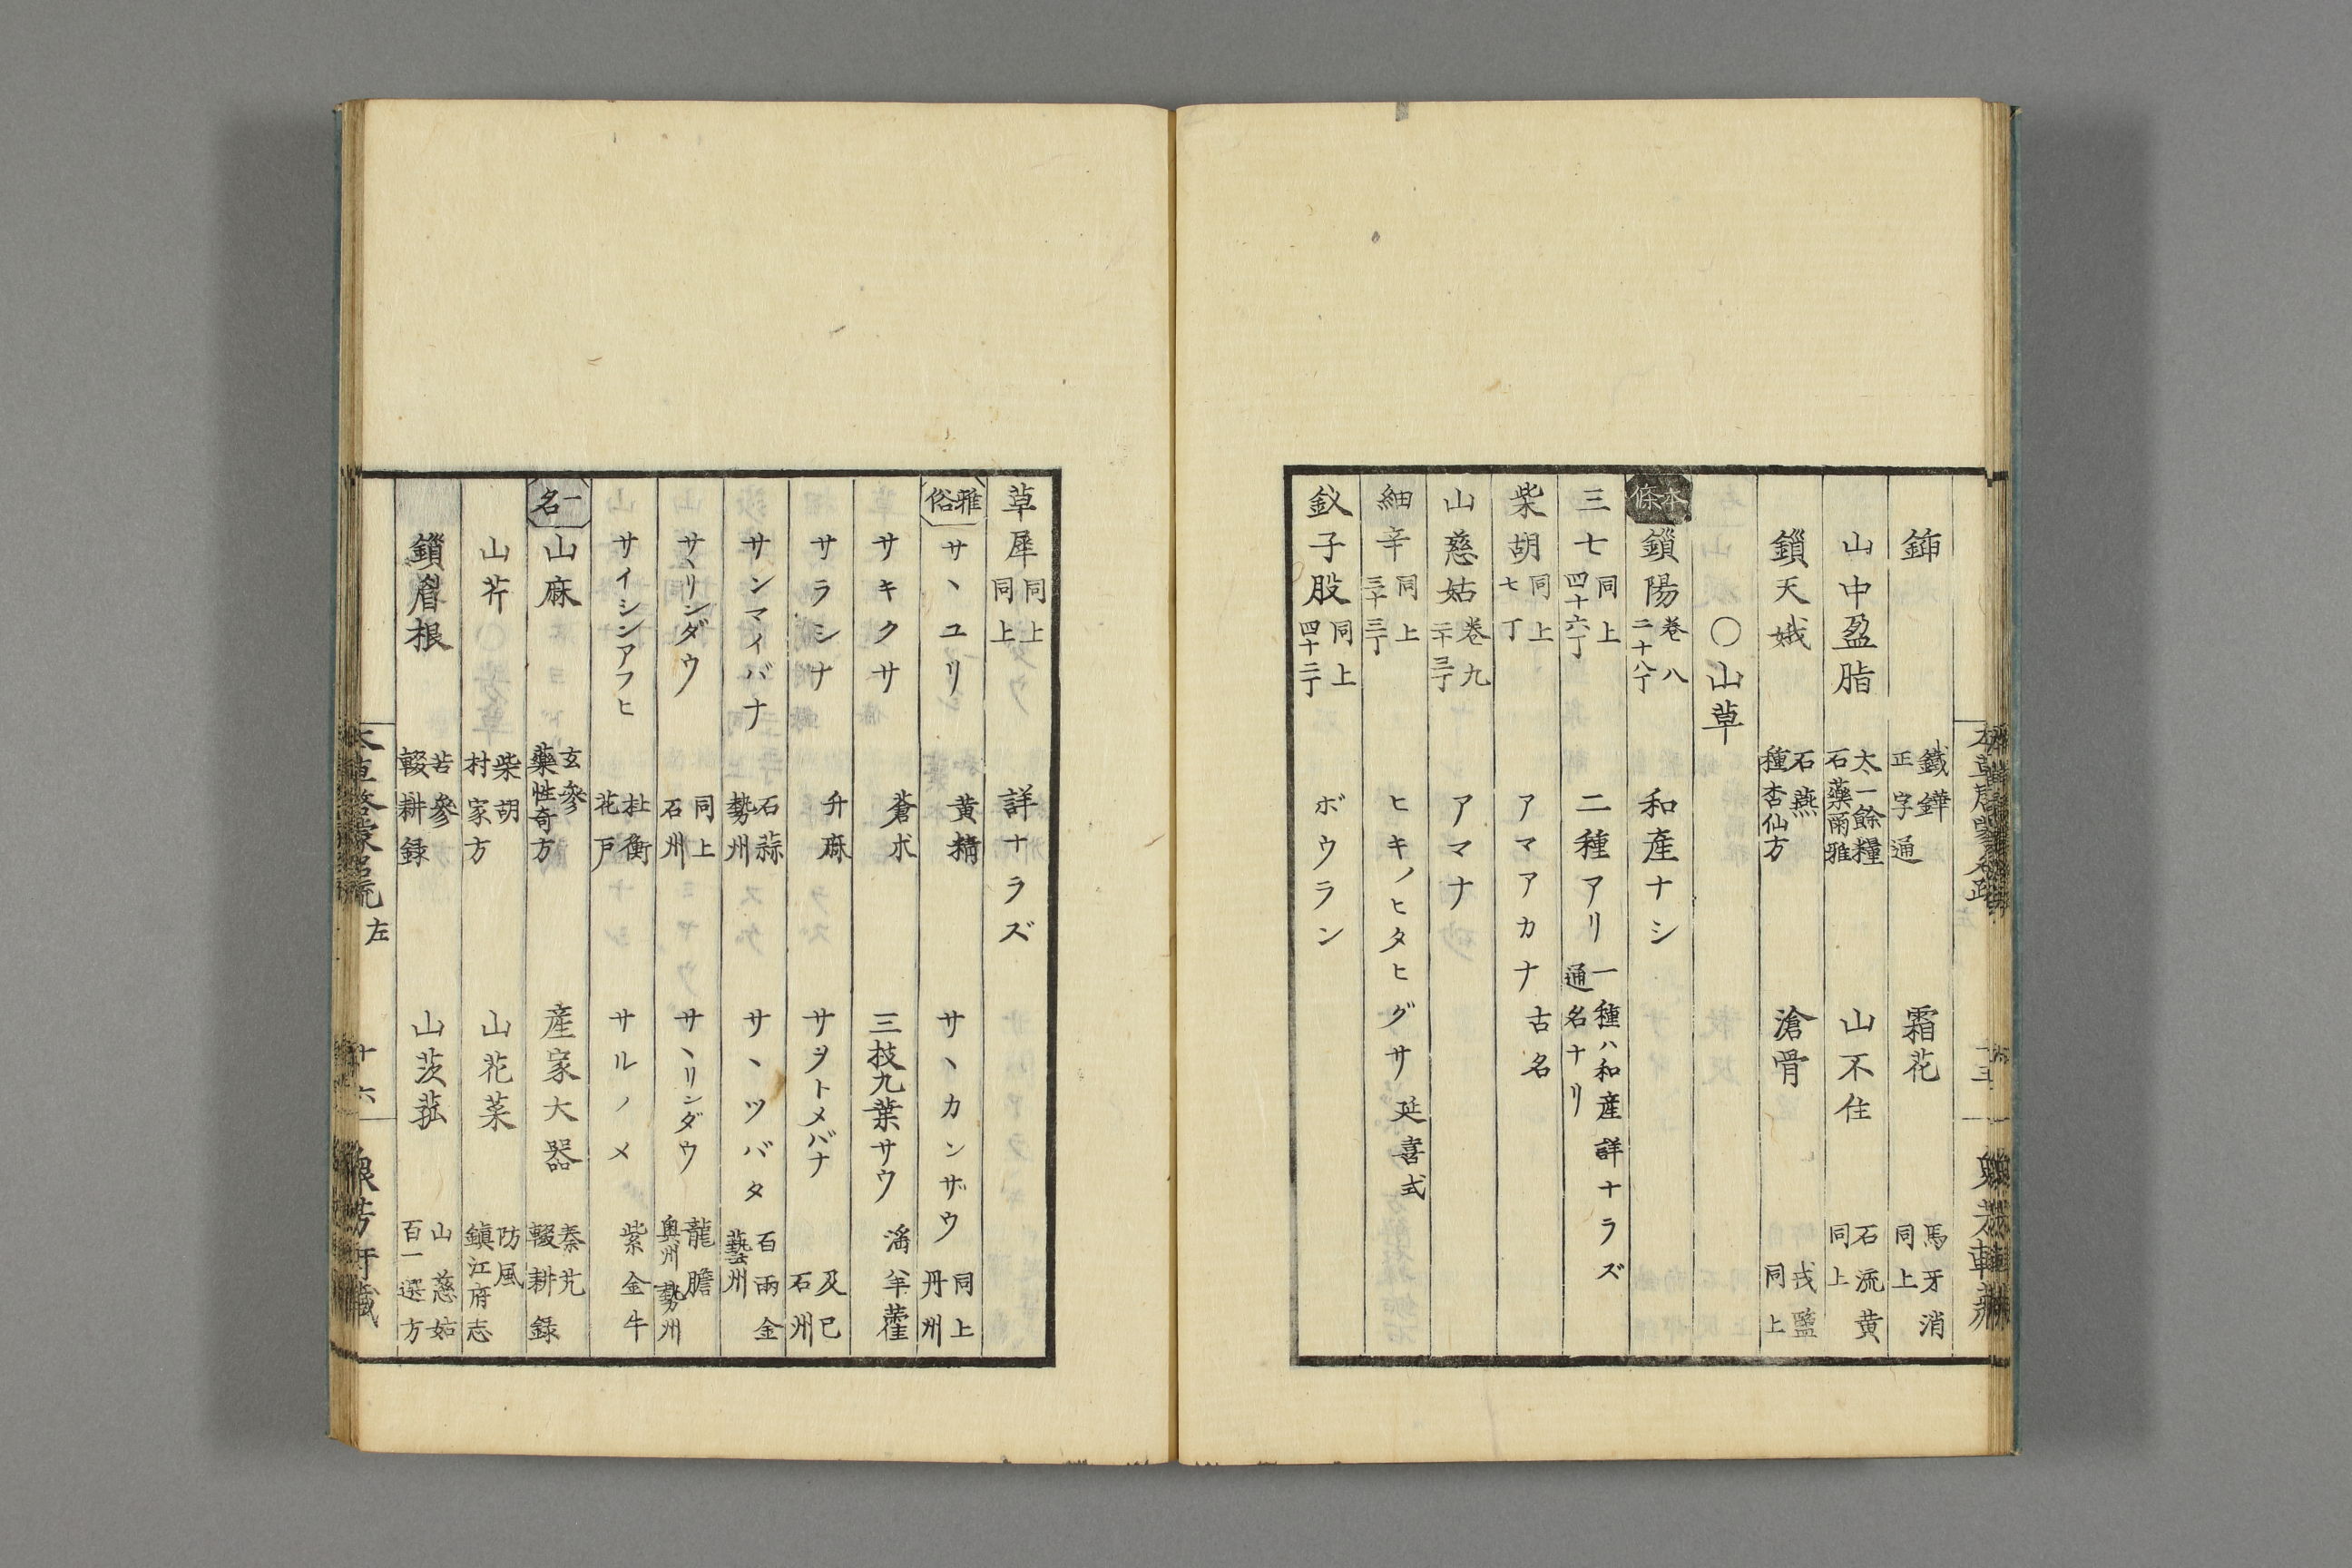 鉘 鐵鏵 正字通 霜花 馬牙消 同上
山中盈脂 太一餘糧 石藥爾雅 山不住 石流黄 同上
鎻天娥 石燕 種杏仙方 滄骨 戎鹽 同上
〇山草
本條 鎻陽 卷八 二十八丁 和産ナシ
三七 同上 四十六丁 二種アリ 一種ハ和産詳ナラズ 通名ナリ
柴胡 同上 七丁 アマアカナ 古名
山慈姑 卷九 二十三丁 アマナ
細辛 同上 三十三丁 ヒキノヒタヒグサ 延喜式
釵子股 同上 四十二丁 ボウラン
草犀 同上 同上 詳ナラズ
雅俗 サヽユリ 黄精 サヽカンザウ 同上 丹州
サキクサ 蒼朮 三枝九葉サウ 淫羊藿
サラシナ 升麻 サヲトメバナ 及已 石州
サンマイバナ 石蒜 勢州 サヽツバタ 百兩金 藝州
サヽリンダウ 同上 石州 サヽリンダウ 龍膽 奥州 勢州
サイシンアフヒ 杜衡 花戸 サルノメ 紫金牛
一名 山麻 玄參 藥性奇方 産家大器 秦艽 輟耕録
山芥 柴胡 村家方 山花菜 防風 鎭江府志
鎻眉根 苦參 輟耕録 山茨菰 山慈姑 百一選方
左 十六